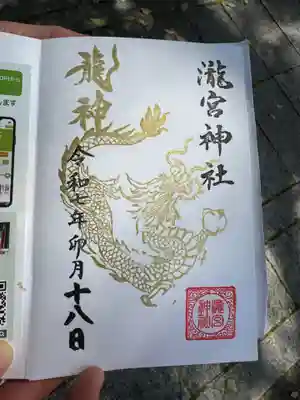 瀧宮神社
龍神
令和七年卯月十八日
瀧宮
神社
ます